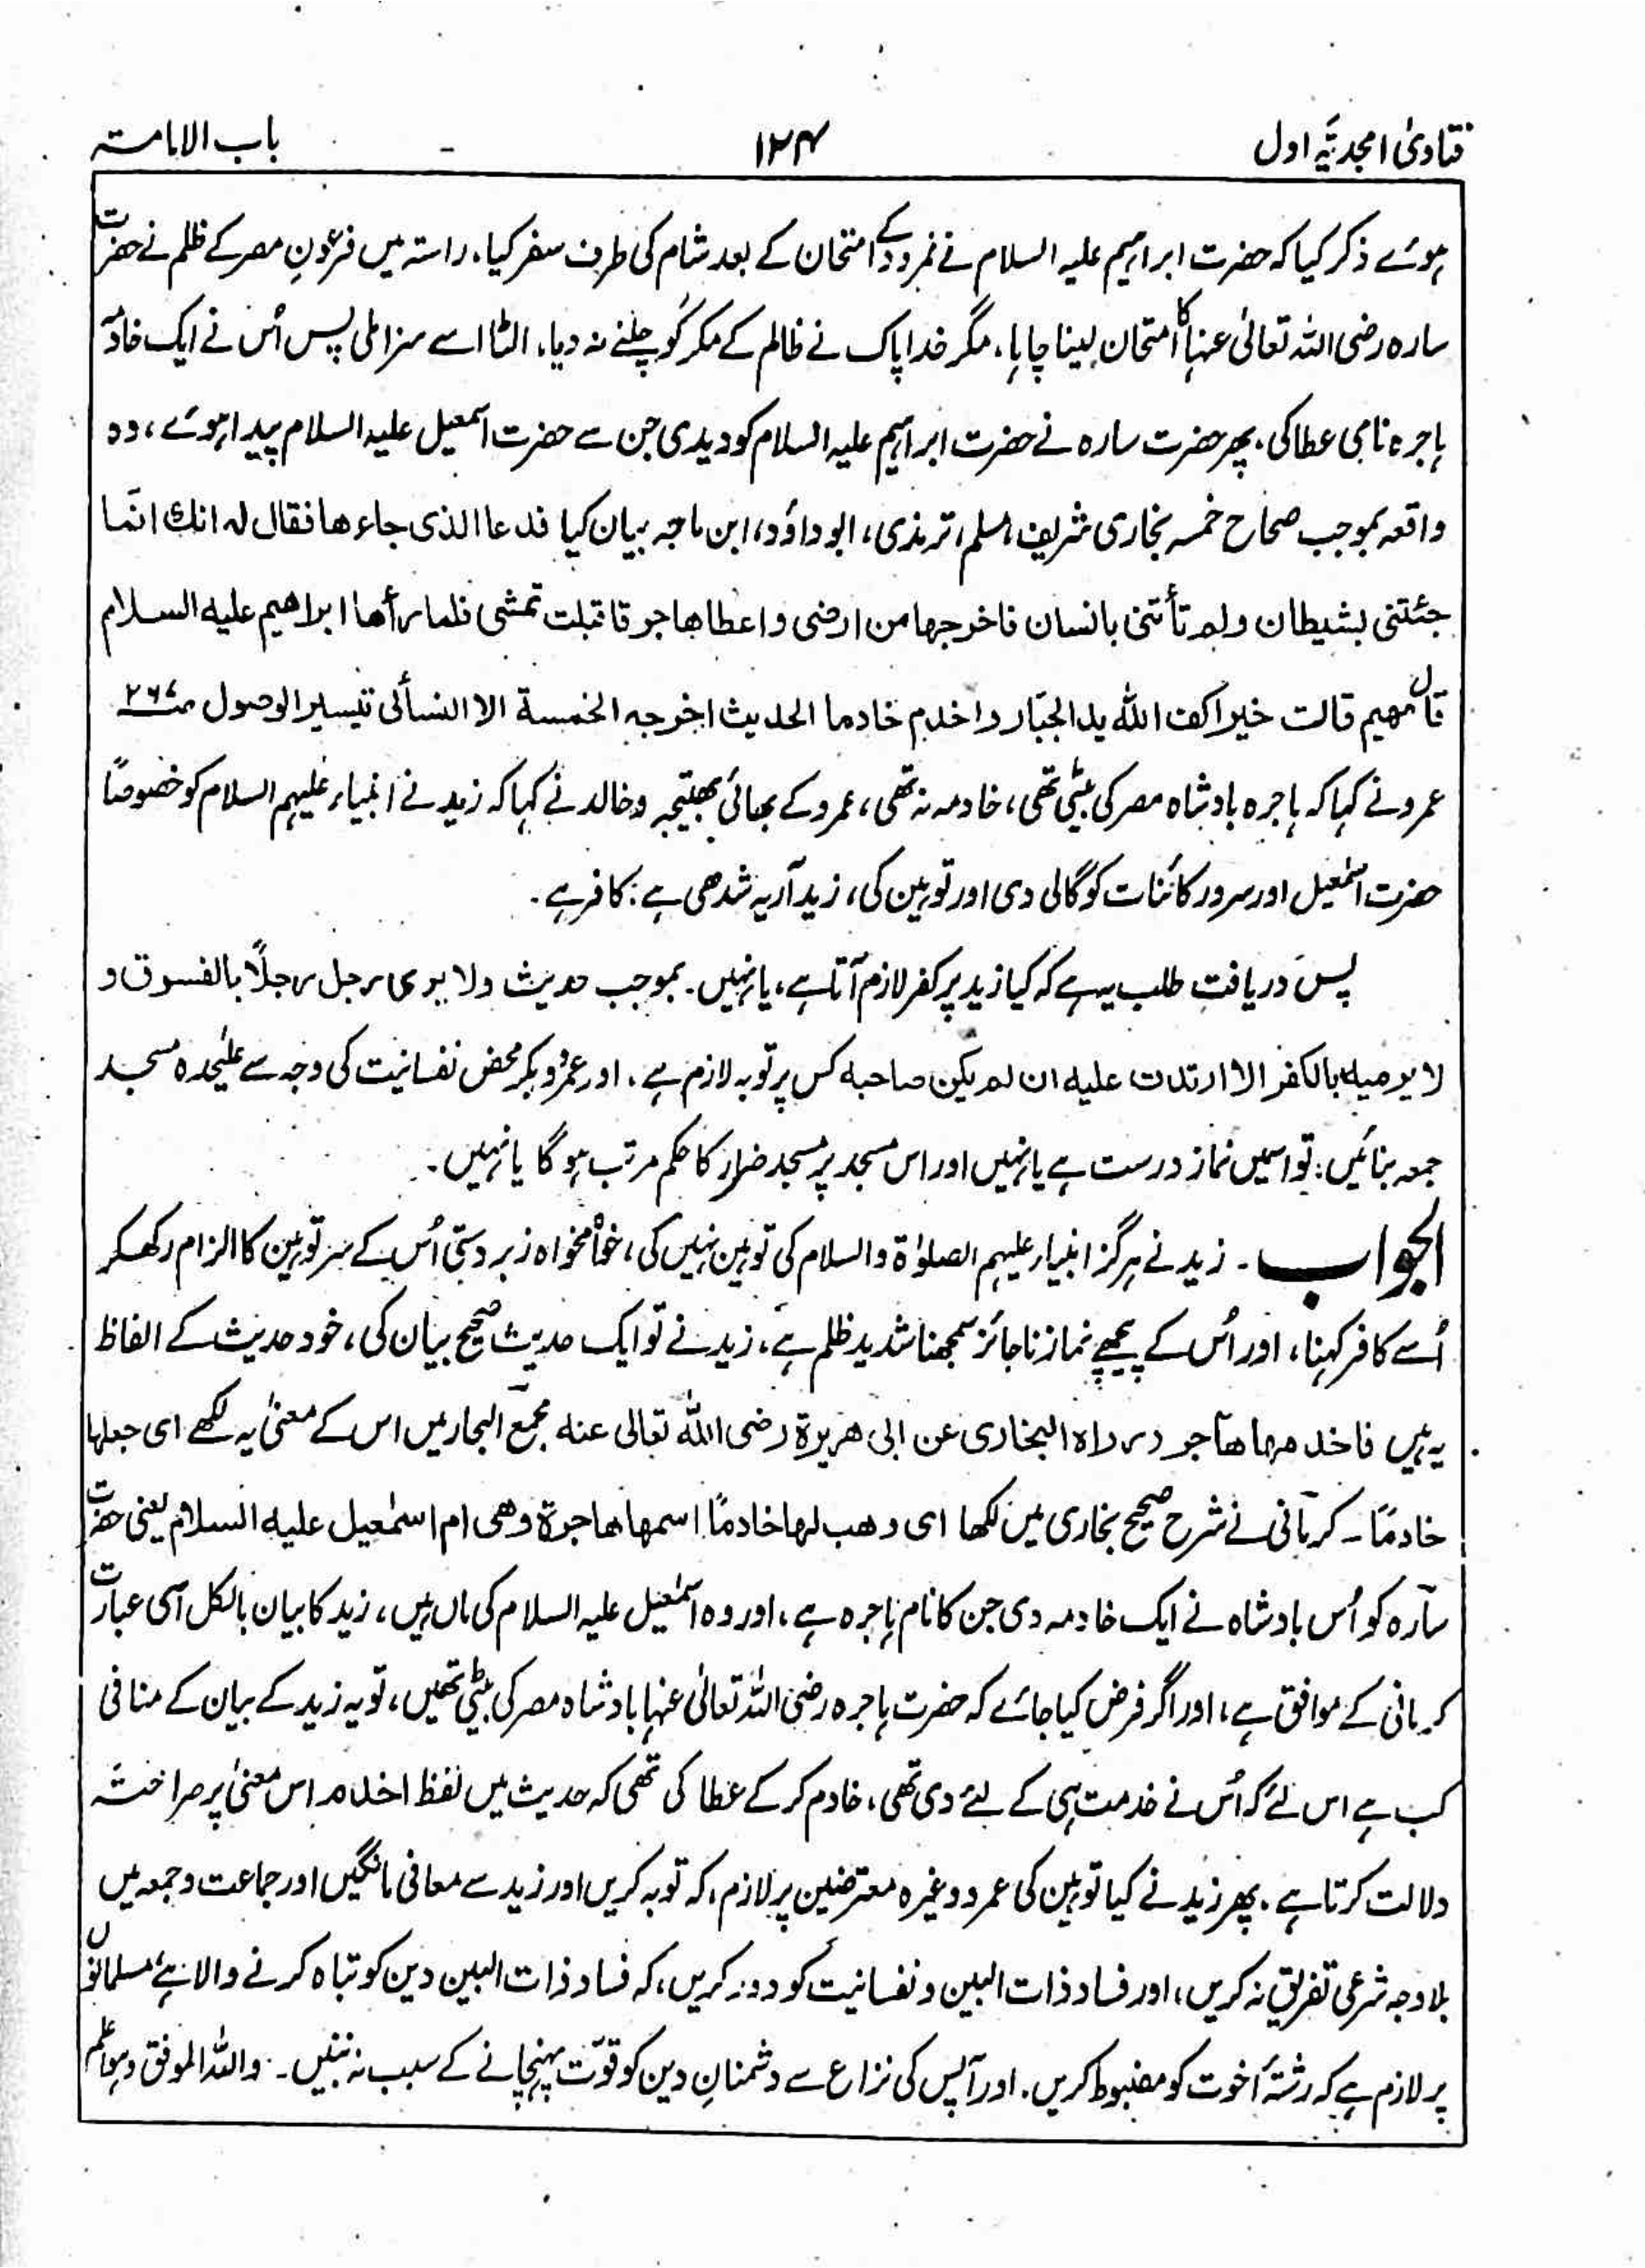 فتاویٰ امجدیہ اول
۱۲۴
باب الامامتہ
ہوئے ذکر کیا کہ حضرت ابراہیم علیہ السلام نے نمرود کے امتحان کے بعد شام کی طرف سفر کیا، راستہ میں فرعونِ مصر کے ظلم نے حضرت
سارہ رضی اللہ تعالیٰ عنہا کا امتحان لینا چاہا، مگر خدا پاک نے ظالم کے مکر کو چلنے نہ دیا، الٹا اسے سزا ملی پس اُس نے ایک خادمہ
ہاجرہ نامی عطا کی، پھر حضرت سارہ نے حضرت ابراہیم علیہ السلام کو دیدی جن سے حضرت اسمٰعیل علیہ السلام پیدا ہوئے، وہ
واقعہ بموجب صحاح خمسہ بخاری شریف، مسلم، ترمذی، ابو داؤد، ابن ماجہ بیان کیا فدعا الذی جاء ھا فقال لہ انك انّما
جئتنی بشیطان ولم تأتنی بانسان فاخرجہا من ارضی واعطاھا جر فاقبلت تمشی فلما رأھا ابراھیم علیه السلام
قال مھیم قالت خیرا کف اللہ ید الجبّار واخدم خادما الحدیث اخرجہ الخمسة الا النسأئی تیسیر الوصول ص۲۶۷
عمرو نے کہا کہ ہاجرہ بادشاہ مصر کی بیٹی تھی، خادمہ نہ تھی، عمرو کے بھائی بھتیجہ وخالد نے کہا کہ زید نے انبیاء علیہم السلام کو خصوصًا
حضرت اسمٰعیل اور سرور کائنات کو گالی دی اور توہین کی، زید آریہ شدھی ہے: کافر ہے۔
پس دریافت طلب یہ ہے کہ کیا زید پر کفر لازم آتا ہے، یا نہیں۔ بموجب حدیث ولا یرمی رجل رجلًا بالفسوق و
لا یرمیه بالکفر الا ارتدت علیه ان لم یکن صاحبه کس پر توبہ لازم ہے، اور عمرو و بکر محض نفسانیت کی وجہ سے علیٰحدہ مسجد
جمعہ بنائیں: تو اسمیں نماز درست ہے یا نہیں اور اس مسجد پر مسجد ضرار کا حکم مرتب ہوگا یا نہیں۔
الجواب۔ زید نے ہرگز انبیاء علیہم الصلوٰۃ والسلام کی توہین نہیں کی، خواہ مخواہ زبردستی اُس کے سر توہین کا الزام رکھ کر
اُسے کافر کہنا، اور اُس کے پیچھے نماز ناجائز سمجھنا شدید ظلم ہے، زید نے تو ایک حدیث صحیح بیان کی، خود حدیث کے الفاظ
یہ ہیں فاخدمہا ھاجر رواہ البخاری عن ابی ھریرة رضی اللہ تعالی عنه مجمع البحار میں اس کے معنیٰ یہ لکھے ای جعلہا
خادمًا۔ کرمانی نے شرح صحیح بخاری میں لکھا ای وھب لہا خادمًا اسمھا ھاجرة وھی ام اسمٰعیل علیه السلام یعنی حضرت
سارہ کو اُس بادشاہ نے ایک خادمہ دی جن کا نام ہاجرہ ہے، اور وہ اسمٰعیل علیہ السلام کی ماں ہیں، زید کا بیان بالکل اسی عبارت
کرمانی کے موافق ہے، اور اگر فرض کیا جائے کہ حضرت ہاجرہ رضی اللہ تعالیٰ عنہا بادشاہ مصر کی بیٹی تھیں، تو یہ زید کے بیان کے منافی
کب ہے اس لئے کہ اُس نے خدمت ہی کے لئے دی تھی، خادم کر کے عطا کی تھی کہ حدیث میں لفظ اخدم اس معنیٰ پر صراحتہً
دلالت کرتا ہے، پھر زید نے کیا توہین کی عمرو وغیرہ معترضین پر لازم، کہ توبہ کریں اور زید سے معافی مانگیں اور جماعت وجمعہ میں
بلا وجہ شرعی تفریق نہ کریں، اور فساد ذات البین ونفسانیت کو دور کریں، کہ فساد ذات البین دین کو تباہ کرنے والا ہے مسلمانوں
پر لازم ہے کہ رشتۂ اخوت کو مضبوط کریں، اور آپس کی نزاع سے دشمنانِ دین کو قوّت پہنچانے کے سبب نہ بنیں۔ واللہ الموفق وہو اعلم